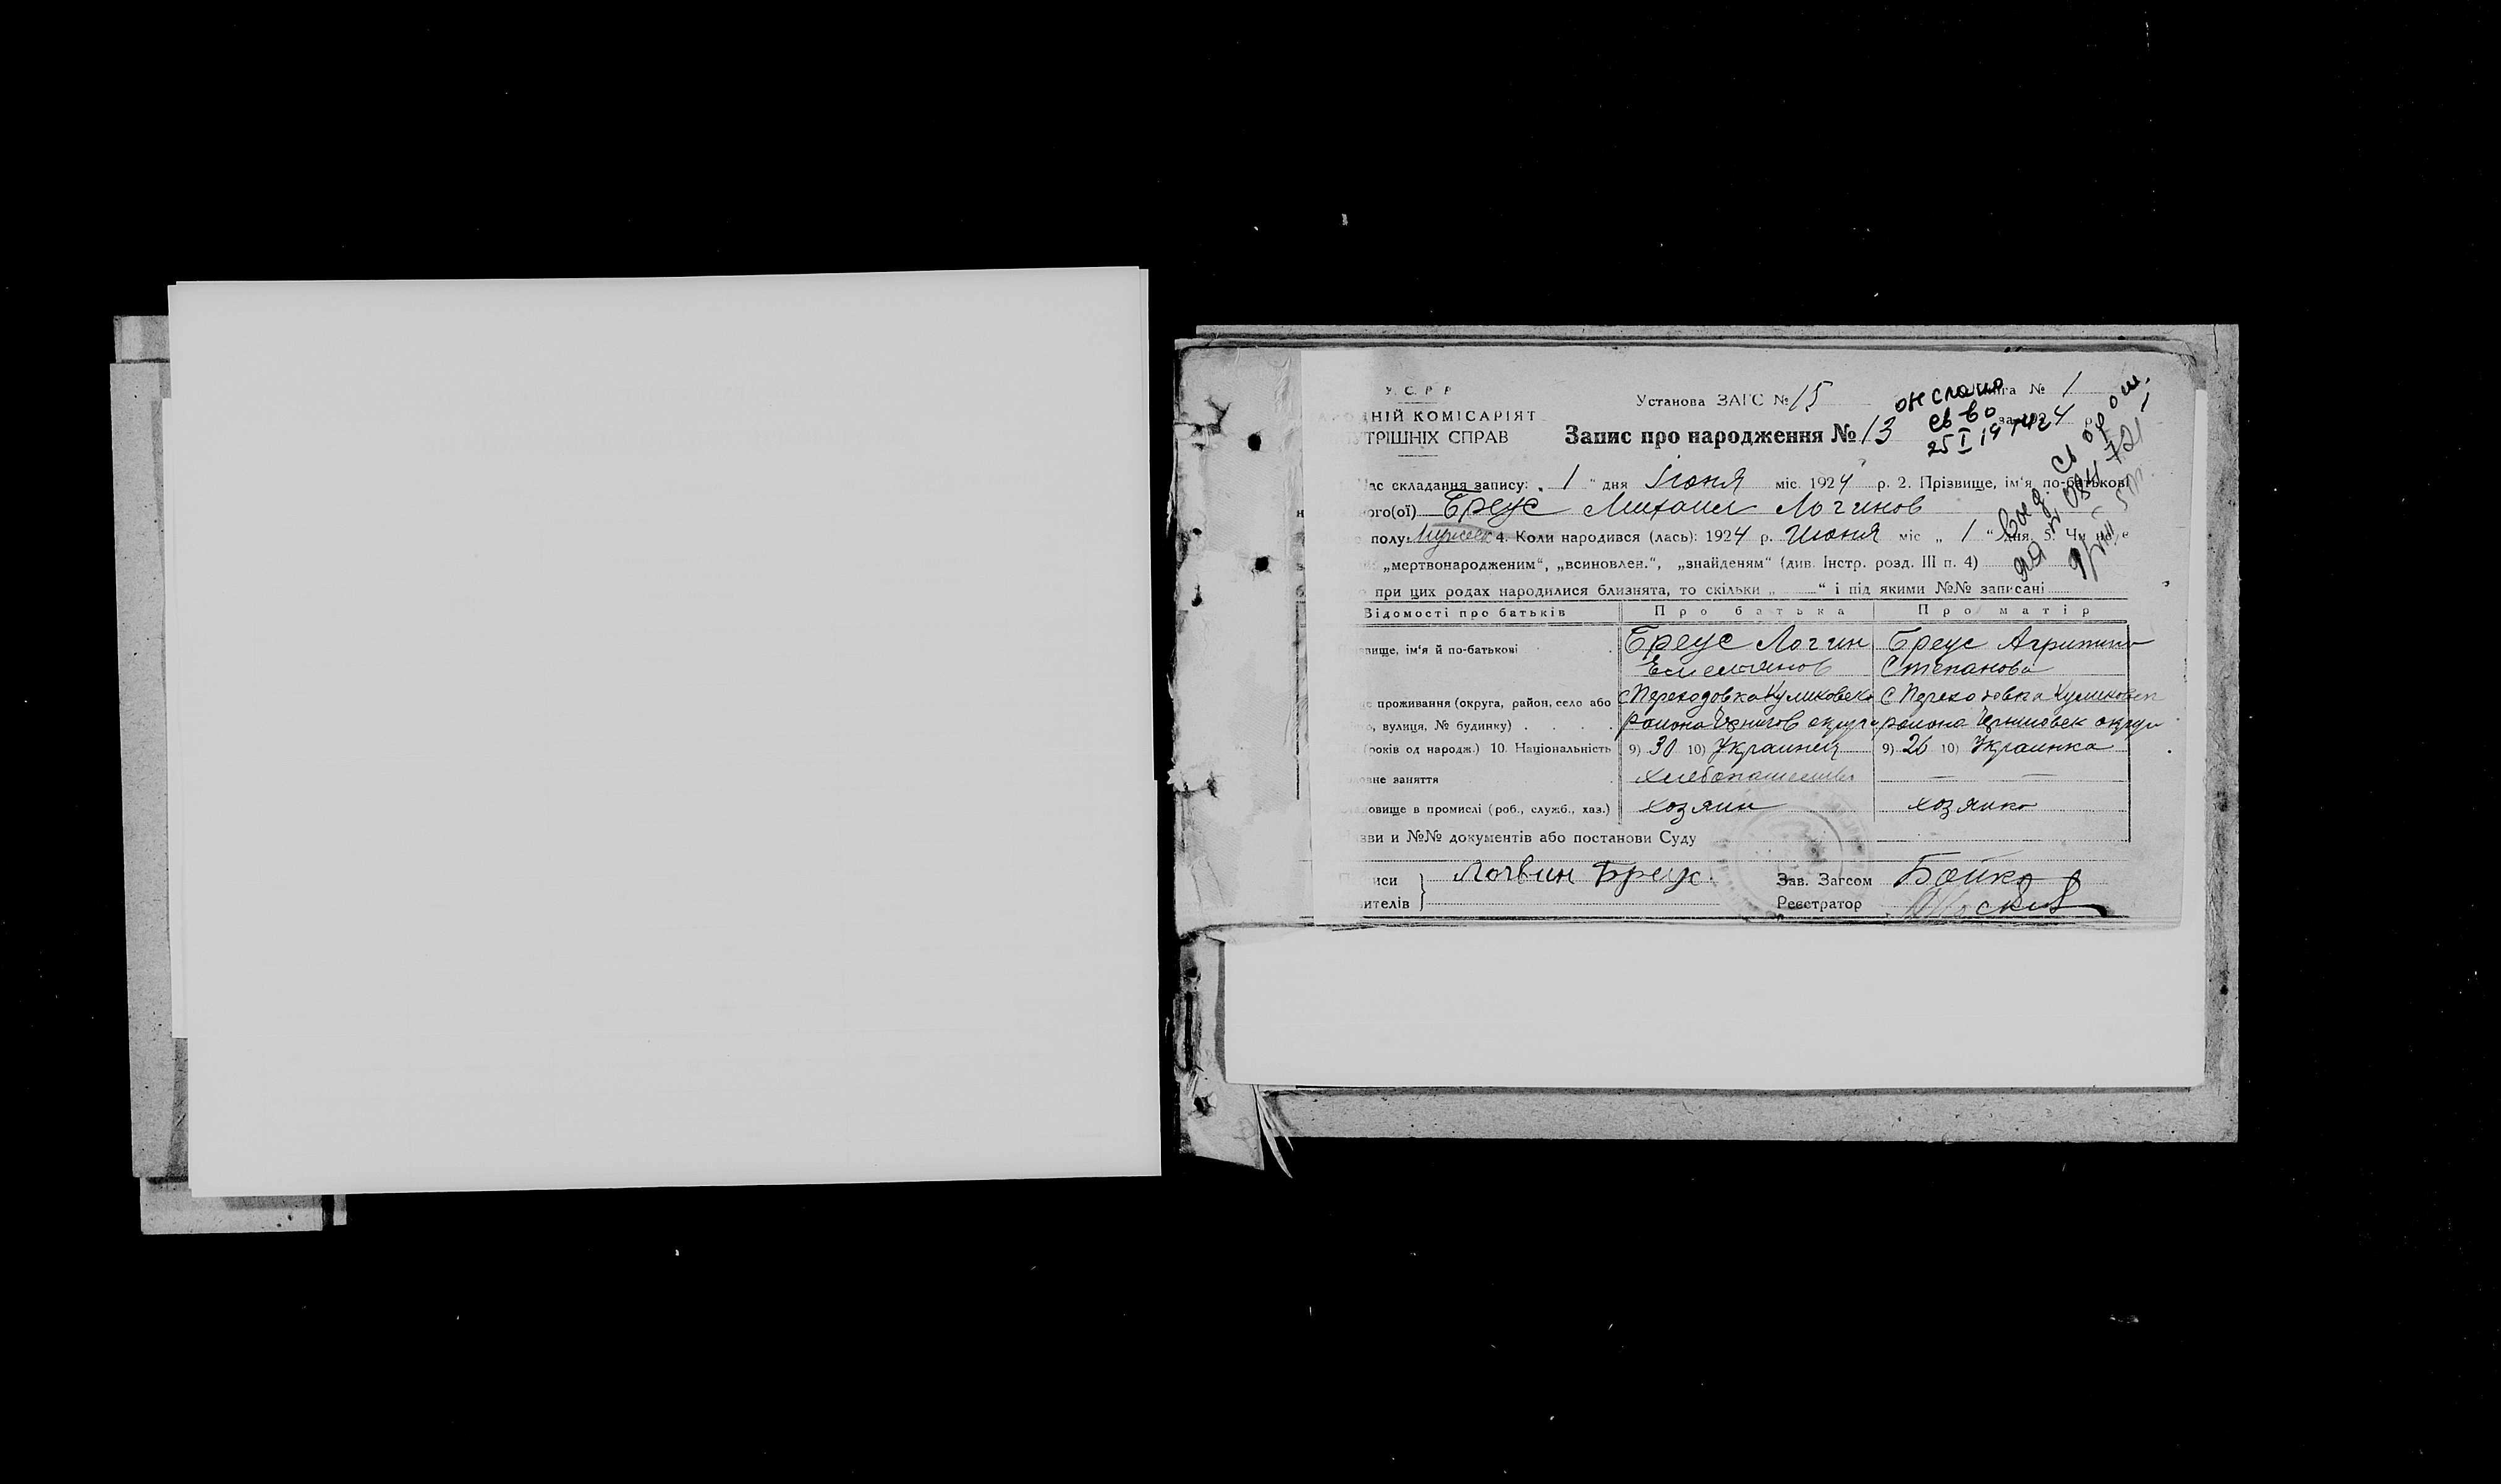 У. С. Р. Р
НІЙ КОМІСАРІЯТ
ТРІШНІХ СПРАВ
Установа ЗАГС № 15
Книга № 1
за 1924 р.
Запис про народження № 13
св во
25 I 19
час складання запису: „ 1 “ дня Июня міс. 1924 р. 2. Прізвище, ім'я по-батькові
ого(ої) Бреус Михаил Логинов
полу: Мужск 4. Коли народився (лась): 1924 р. Июня міс „ 1 “ дня. 5. Чи не є
„мертвонародженим“, „всиновлен.“, „знайденям“ (див. Інстр. розд. III п. 4)
при цих родах народилися близнята, то скільки „ “ і під якими №№ записані
Відомості про батьків Про батька Про матір
вище, ім'я й по-батькові Бреус Логин Бреус Агрипина
Емельянов Степанова
проживання (округа, район, село або с Переходовка Куликовск с Переходовка Куликовск
вулиця, № будинку) района Чернигов округа района Черниговск округи
(років од народж.) 10. Національність 9) 30 10) Украинец 9) 26 10) Украинка
вне заняття хлебопашество — —
овище в промислі (роб., служб., хаз.) хозяин хозяйка
зви и №№ документів або постанови Суду
иси Логвин Бреус. Зав. Загсом Бойко
ителів Реєстратор